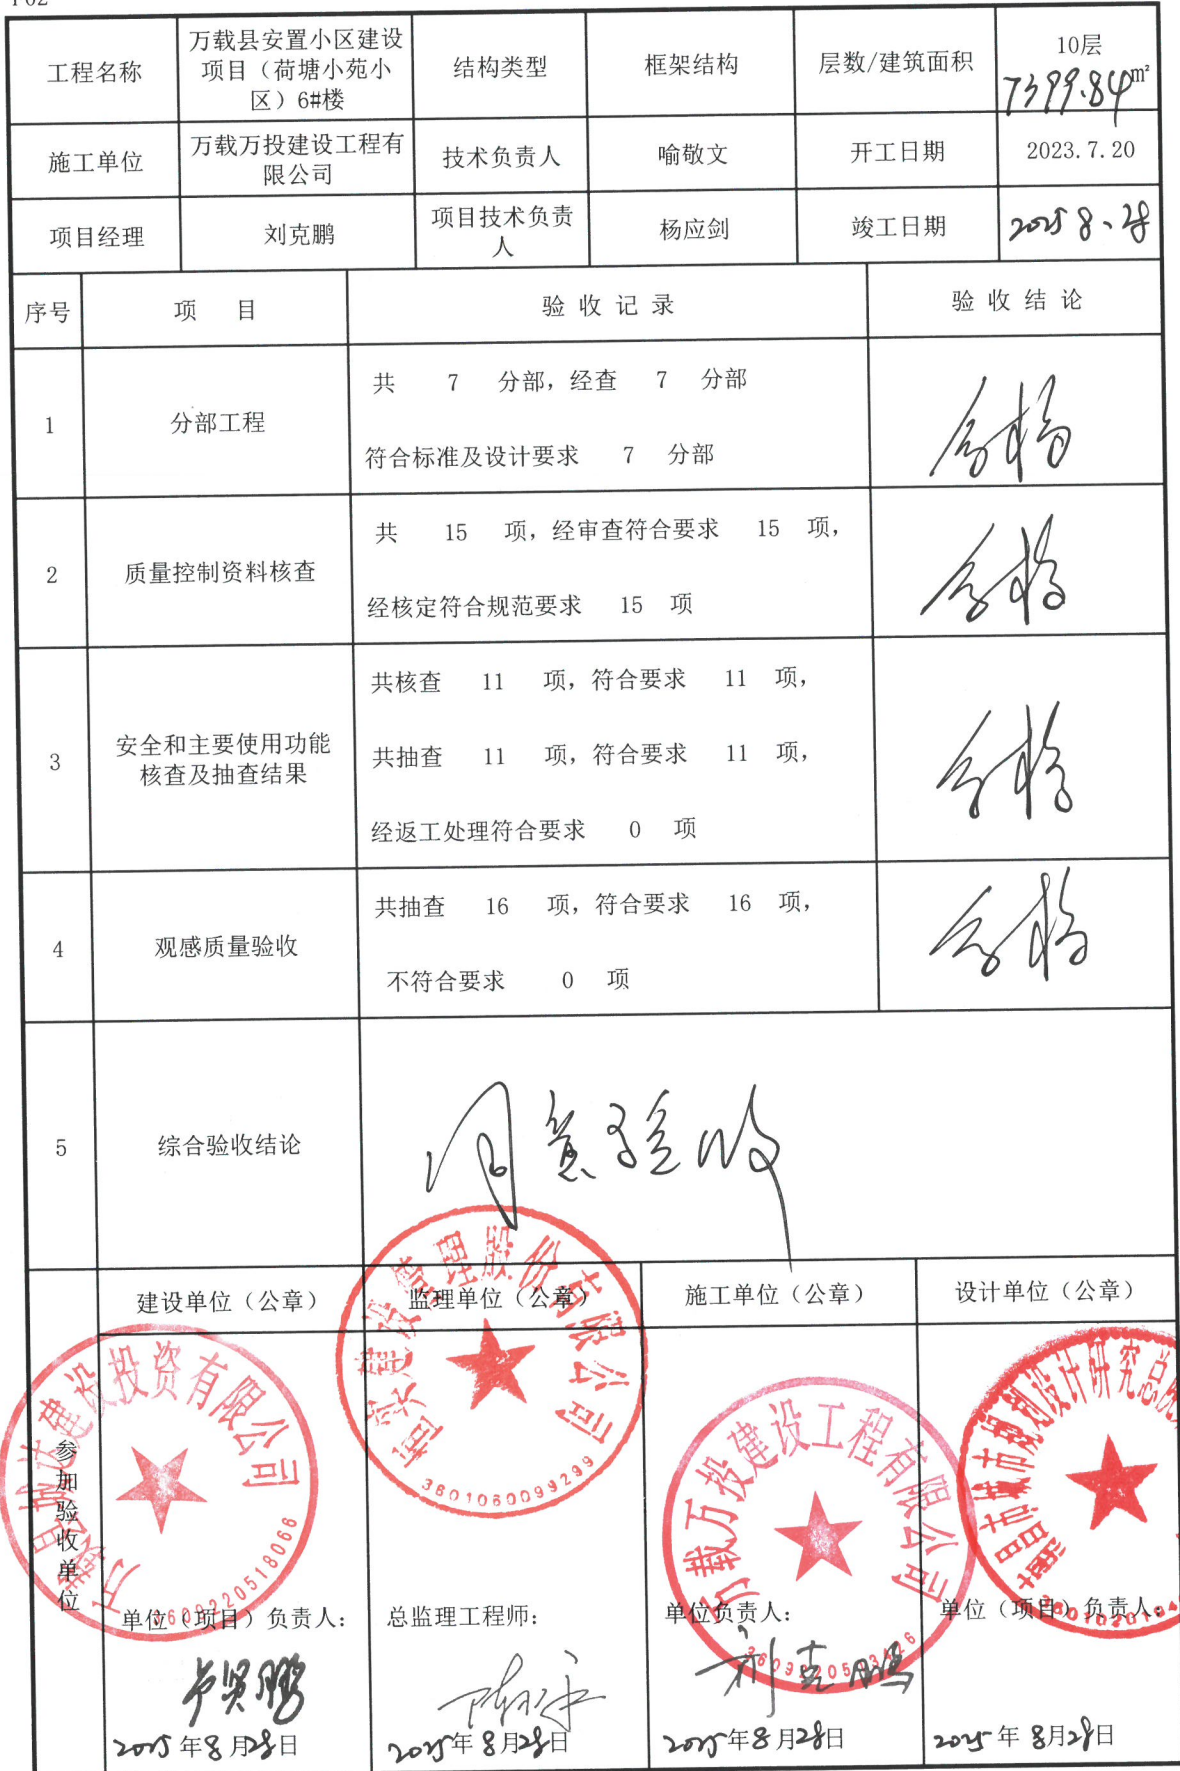 工程名称 万载县安置小区建设项目（荷塘小苑小区）6#楼 结构类型 框架结构 层数/建筑面积 10层 7399.84m²
施工单位 万载万投建设工程有限公司 技术负责人 喻敬文 开工日期 2023.7.20
项目经理 刘克鹏 项目技术负责人 杨应剑 竣工日期 2025 8、28
序号 项 目 验 收 记 录 验 收 结 论
1 分部工程 共 7 分部，经查 7 分部
符合标准及设计要求 7 分部
合格
2 质量控制资料核查 共 15 项，经审查符合要求 15 项，
经核定符合规范要求 15 项
合格
3 安全和主要使用功能核查及抽查结果 共核查 11 项，符合要求 11 项，
共抽查 11 项，符合要求 11 项，
经返工处理符合要求 0 项
合格
4 观感质量验收 共抽查 16 项，符合要求 16 项，
不符合要求 0 项
合格
5 综合验收结论 同意验收
参加验收单位
建设单位（公章） 监理单位（公章） 施工单位（公章） 设计单位（公章）
建设投资有限公司
3609220518066
建设监理股份有限公司
3601060099299
万载万投建设工程有限公司
南昌市城市规划设计研究总院
单位（项目）负责人： 总监理工程师： 单位负责人： 单位（项目）负责人：
刘克鹏
2025年8月28日 2025年8月28日 2025年8月28日 2025年8月28日